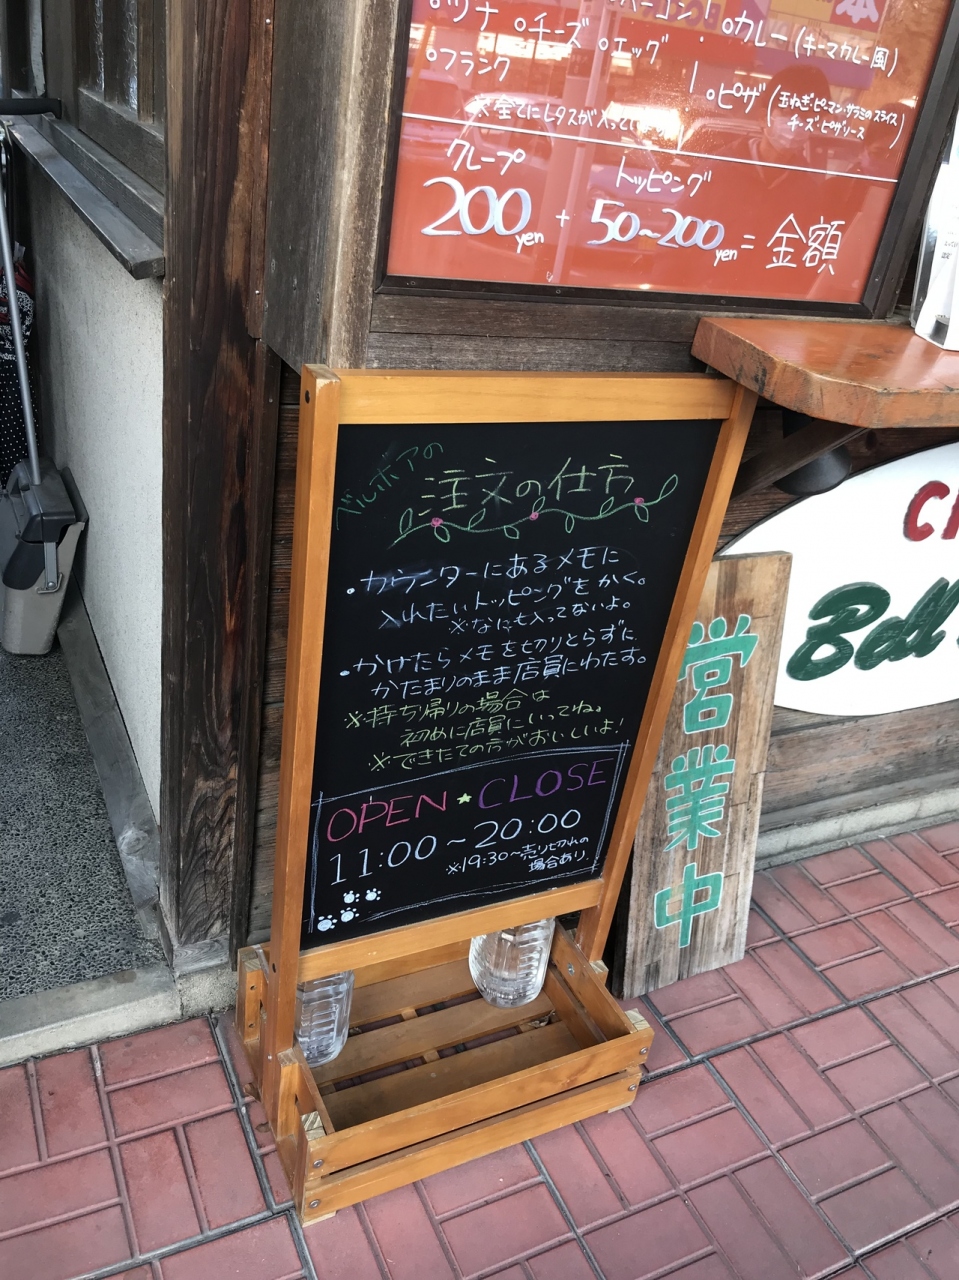 ○ツナ ○チーズ ○エッグ
○フランク
○カレー(キーマカレー風)
○ピザ(玉ねぎ・ピーマン・サラミのスライス
チーズ・ピザソース)
※全てにレタスが入って
クレープ
200yen + トッピング 50~200yen = 金額
ベルポアの
注文の仕方
・カウンターにあるメモに
入れたいトッピングをかく。
※なにも入ってないよ。
・かけたらメモを切りとらずに
かたまりのまま店員にわたす。
※持ち帰りの場合は
初めに店員にいってね。
※できたての方がおいしいよ!
OPEN★CLOSE
11:00~20:00
※19:30~売り切れの
場合あり
営業中
Bell